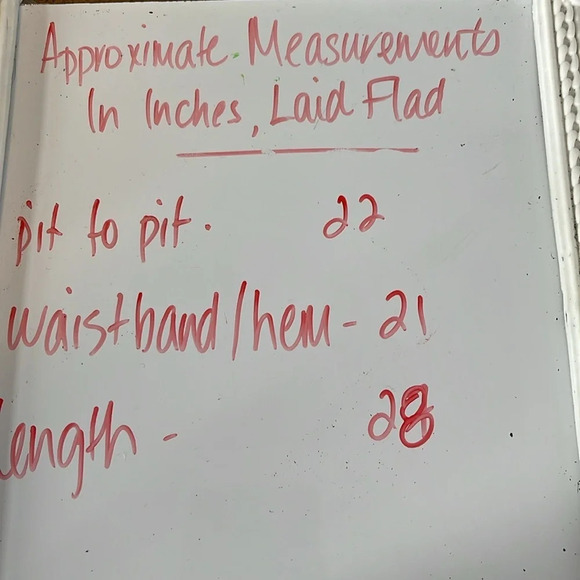 Approximate Measurements
In Inches, Laid Flad
pit to pit. 22
waistband/hem - 21
length - 28